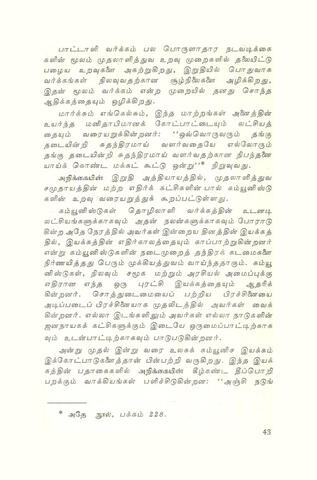 பாட்டாளி வர்க்கம் பல பொருளாதார நடவடிக்கை
களின் மூலம் முதலாளித்துவ உறவு முறைகளில் தலையிட்டு
பழைய உறவுகளை அகற்றுகிறது, இறுதியில் பொதுவாக
வர்க்கங்கள் நிலவுவதற்கான சூழ்நிலைகளை அழிக்கிறது,
இதன் மூலம் வர்க்கம் என்ற முறையில் தனது சொந்த
ஆதிக்கத்தையும் ஒழிக்கிறது.
மார்க்சும் எங்கெல்சும், இந்த மாற்றங்கள் அனைத்தின்
உயர்ந்த மனிதாபிமானக் கோட்பாட்டையும் லட்சியத்
தையும் வரையறுக்கின்றனர்: ''ஒவ்வொருவரும் தங்கு
தடையின்றி சுதந்திரமாய் வளர்வதையே எல்லோரும்
தங்கு தடையின்றி சுதந்திரமாய் வளர்வதற்கான நிபந்தனை
யாய்க் கொண்ட மக்கட் கூட்டு ஒன்று''* நிறுவுவது.
அறிக்கையின் இறுதி அத்தியாயத்தில், முதலாளித்துவ
சமுதாயத்தின் மற்ற எதிர்க் கட்சிகளின்பால் கம்யூனிஸ்டு
களின் உறவு வரையறுத்துக் கூறப்பட்டுள்ளது.
கம்யூனிஸ்டுகள் தொழிலாளி வர்க்கத்தின் உடனடி
லட்சியங்களுக்காகவும் அதன் நலன்களுக்காகவும் போராடு
கின்ற அதே நேரத்தில் அவர்கள் இன்றைய தினத்தின் இயக்கத்
தில், இயக்கத்தின் எதிர்காலத்தையும் காப்பாற்றுகின்றனர்
என்று கம்யூனிஸ்டுகளின் நடைமுறைத் தந்திரக் கடமைகளை
நிர்ணயித்தது பெரும் முக்கியத்துவம் வாய்ந்ததாகும். கம்யூ
னிஸ்டுகள், நிலவும் சமூக மற்றும் அரசியல் அமைப்புக்கு
எதிரான எந்த ஒரு புரட்சி இயக்கத்தையும் ஆதரிக்
கின்றனர். சொத்துடைமையைப் பற்றிய பிரச்சினையை
அடிப்படைப் பிரச்சினையாக முதலிடத்தில் அவர்கள் வைக்
கின்றனர். எல்லா இடங்களிலும் அவர்கள் எல்லா நாடுகளின்
ஜனநாயகக் கட்சிகளுக்கும் இடையே ஒருமைப்பாட்டிற்காக
வும் உடன்பாட்டிற்காகவும் பாடுபடுகின்றனர்.
அன்று முதல் இன்று வரை உலகக் கம்யூனிச இயக்கம்
இக்கோட்பாடுகளைத்தான் பின்பற்றி வருகிறது. இந்த இயக்
கத்தின் பதாகைகளில் அறிக்கையின் கீழ்கண்ட தீப்பொறி
பறக்கும் வாக்கியங்கள் பளிச்சிடுகின்றன: ''அஞ்சி நடுங்
* அதே நூல், பக்கம் 228.
43